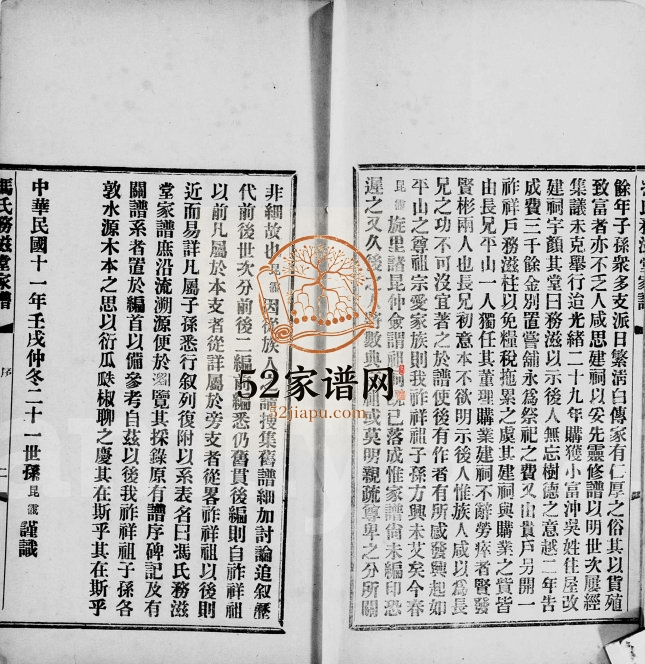 餘年子孫衆多支派日繁清白傳家有仁厚之俗其以貨殖
致富者亦不乏人咸思建祠以安先靈修譜以明世次屢經
集議未克舉行迨光緒二十九年購獲小富沖吳姓住屋改
建祠宇顏其堂曰務滋以示後人無忘樹德之意越二年告
成費三千餘金別置嘗舖永爲祭祀之費又由貴戶另開一
祚祥戶務滋柱以免糧稅拖累之虞其建祠與購業之貲皆
由長兄平山一人獨任其董理購業建祠不辭勞瘁者賢發
賢彬兩人也長兄初意本不欲明示後人惟族人咸以爲長
兄之功不可沒宜著之於譜使後有作者有所感發興起如
平山之尊祖宗愛家族則我祚祥祖子孫方興未艾矣今春
昆 旋里諸昆仲僉謂祖祠 已落成惟家譜尚未編印恐
遲之又久後之 數典 祖或莫明親疏尊卑之分所關
非細故也昆 因從族人 請搜集舊譜細加討論追叙歷
代前後世次分前後二編前編悉仍舊貫後編則自祚祥祖
以前凡屬於本支者從詳屬於旁支者從畧祚祥祖以後則
近而易詳凡屬子孫悉行叙列復附以系表名曰馮氏務滋
堂家譜庶沿流溯源便於 覽其採錄原有譜序碑記及有
關譜系者置於編首以備參考自茲以後我祚祥祖子孫各
敦水源木本之思以衍瓜瓞椒聊之慶其在斯乎其在斯乎
中華民國十一年壬戌仲冬二十一世孫昆 謹識
馮氏務滋堂家譜
序
二
52家谱网
52jiapu.com